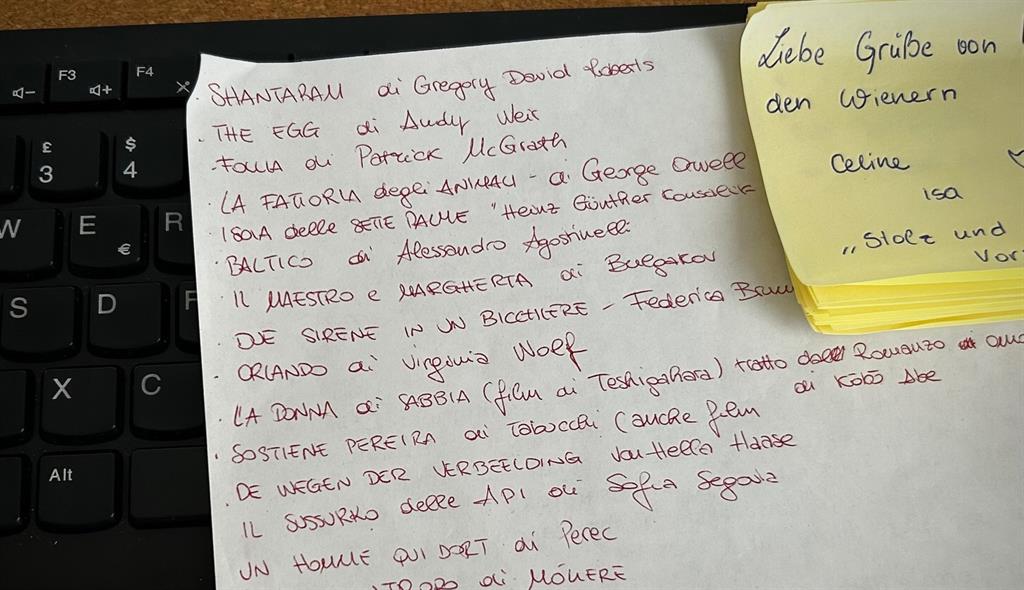 F3
F4
£
3
$
4
W
E
€
R
S
D
F
X
C
Alt
· SHANTARAM di Gregory David Roberts
· THE EGG di Andy Weir
· FOLLIA di Patrick McGrath
· LA FATTORIA degli ANIMALI - di George Orwell
· ISOLA delle SETTE PALME "Heinz Günther Konsalik
· BALTICO di Alessandro Agostinelli
· IL MAESTRO e MARGHERITA di Bulgakov
· DUE SIRENE IN UN BICCHIERE - Federica
· ORLANDO di Virginia Wolf
· LA DONNA di SABBIA (film di Teshigahara) tratto dal Romanzo
di Kōbō Abe
· SOSTIENE PEREIRA di Tabucchi (anche film
DE WEGEN DER VERBEELDING van Hella Haase
IL SUSSURRO delle API di Sofia Segovia
UN HOMME QUI DORT di Perec
di MOLIERE
Liebe Grüße von
den Wienern
Celine
isa
„Stolz und
Vor